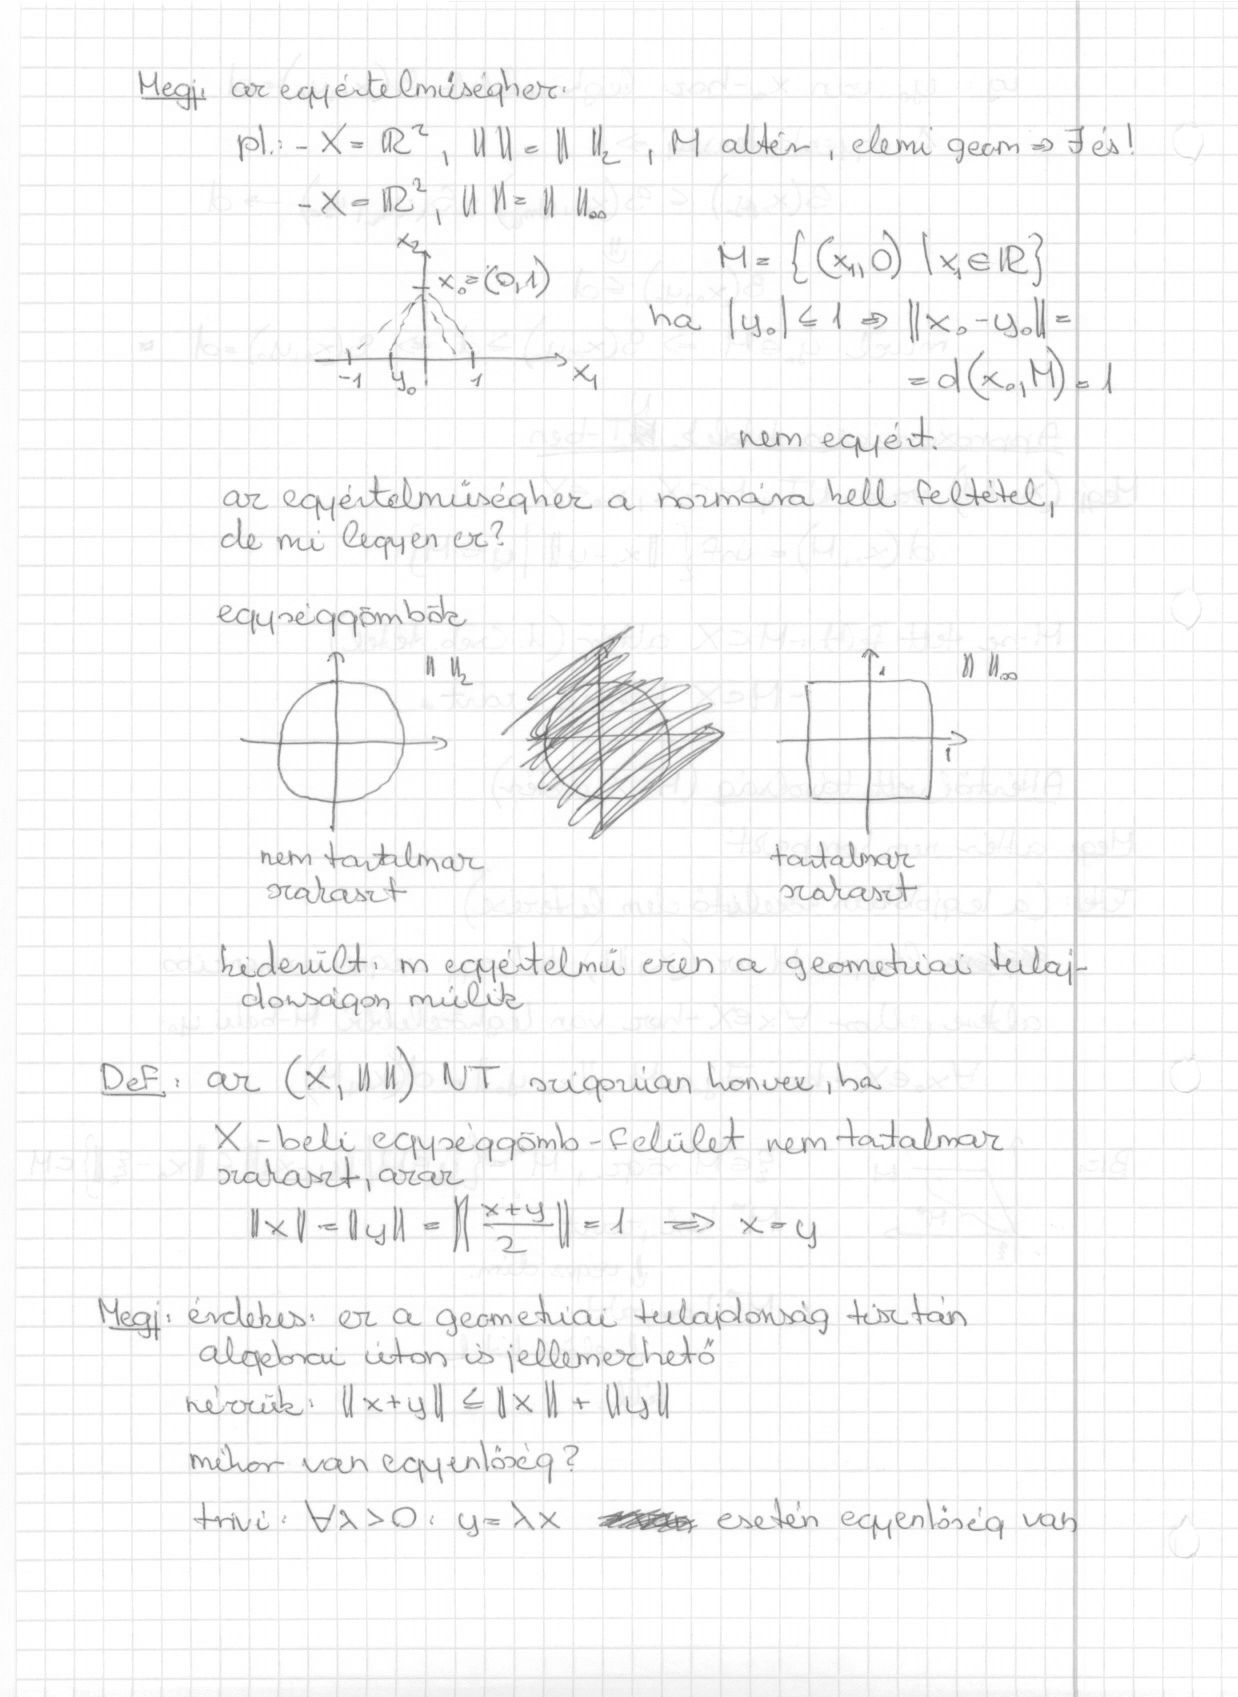 Megj: az egyértelműséghez:
pl.: - X = ℝ², ‖ ‖ = ‖ ‖₂, M altér, elemi geom ⇒ ∃ és!
- X = ℝ², ‖ ‖ = ‖ ‖∞
x₂
x₀=(0,1)
-1 y₀ 1 x₁
M = {(x₁,0) | x₁∈ℝ}
ha |y₀| ≤ 1 ⇒ ‖x₀-y₀‖ =
= d(x₀,M) = 1
nem egyért.
az egyértelműséghez a normára kell feltétel,
de mi legyen ez?
egységgömbök
‖ ‖₂
1 ‖ ‖∞
1
nem tartalmaz
szakaszt
tartalmaz
szakaszt
kiderült: m egyértelmű ezen a geometriai tulaj-
donságon múlik
Def: az (X, ‖ ‖) NT szigorúan konvex, ha
X-beli egységgömb-felület nem tartalmaz
szakaszt, azaz
‖x‖ = ‖y‖ = ‖(x+y)/2‖ = 1 ⇒ x=y
Megj: érdekes: ez a geometriai tulajdonság tisztán
algebrai úton is jellemezhető
nézzük: ‖x+y‖ ≤ ‖x‖ + ‖y‖
mikor van egyenlőség?
trivi: ∀λ>0: y=λx esetén egyenlőség van